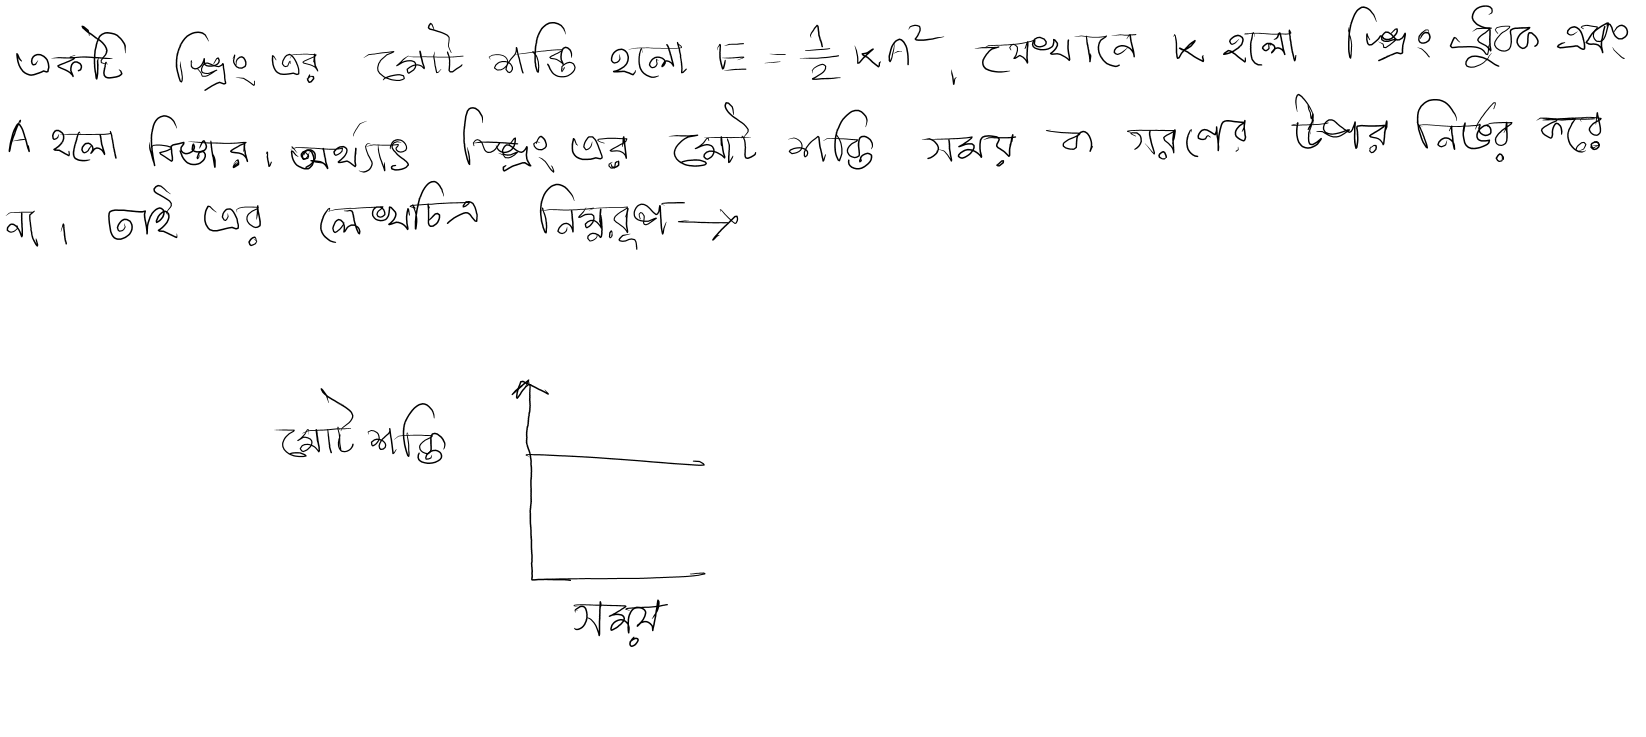 একটি স্প্রিং এর মোট শক্তি হলো E = 1/2 KA², যেখানে K হলো স্প্রিং ধ্রুবক এবং
A হলো বিস্তার। অর্থ্যাৎ স্প্রিং এর মোট শক্তি সময় বা সরণের উপর নির্ভর করে
না। তাই এর লেখচিত্র নিম্নরূপ →
মোট শক্তি
সময়